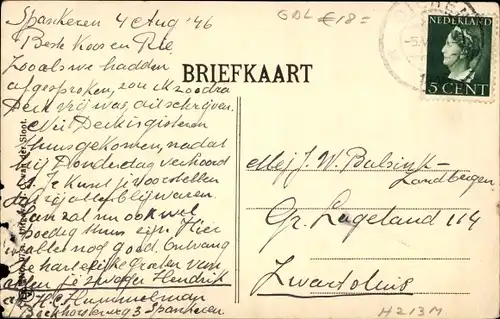 Spankeren 4 Aug '46
GDL €18=
Beste Koos en Rie,
Zooals we hadden
afgesproken, zou ik zoodra
Derk vrij was, dit schrijven.
Nu Derk is gisteren
thuisgekomen, nadat
hij Donderdag verhoord
is. Je kunt je voorstellen
dat zij allen blij waren.
zal nu ook wel
spoedig thuis zijn. Hier
alles nog goed. Ontvang
de hartelijke groeten van
allen je zwager Hendrik
H.C. Hummelman
Bockhorsterweg 3 Spankeren
BRIEFKAART
NEDERLAND
5 CENT
Mej. J. W. Bulsink-
Landbergen
Gr. Lageland 114
Zwartsluis
H213M
van der Sloot.